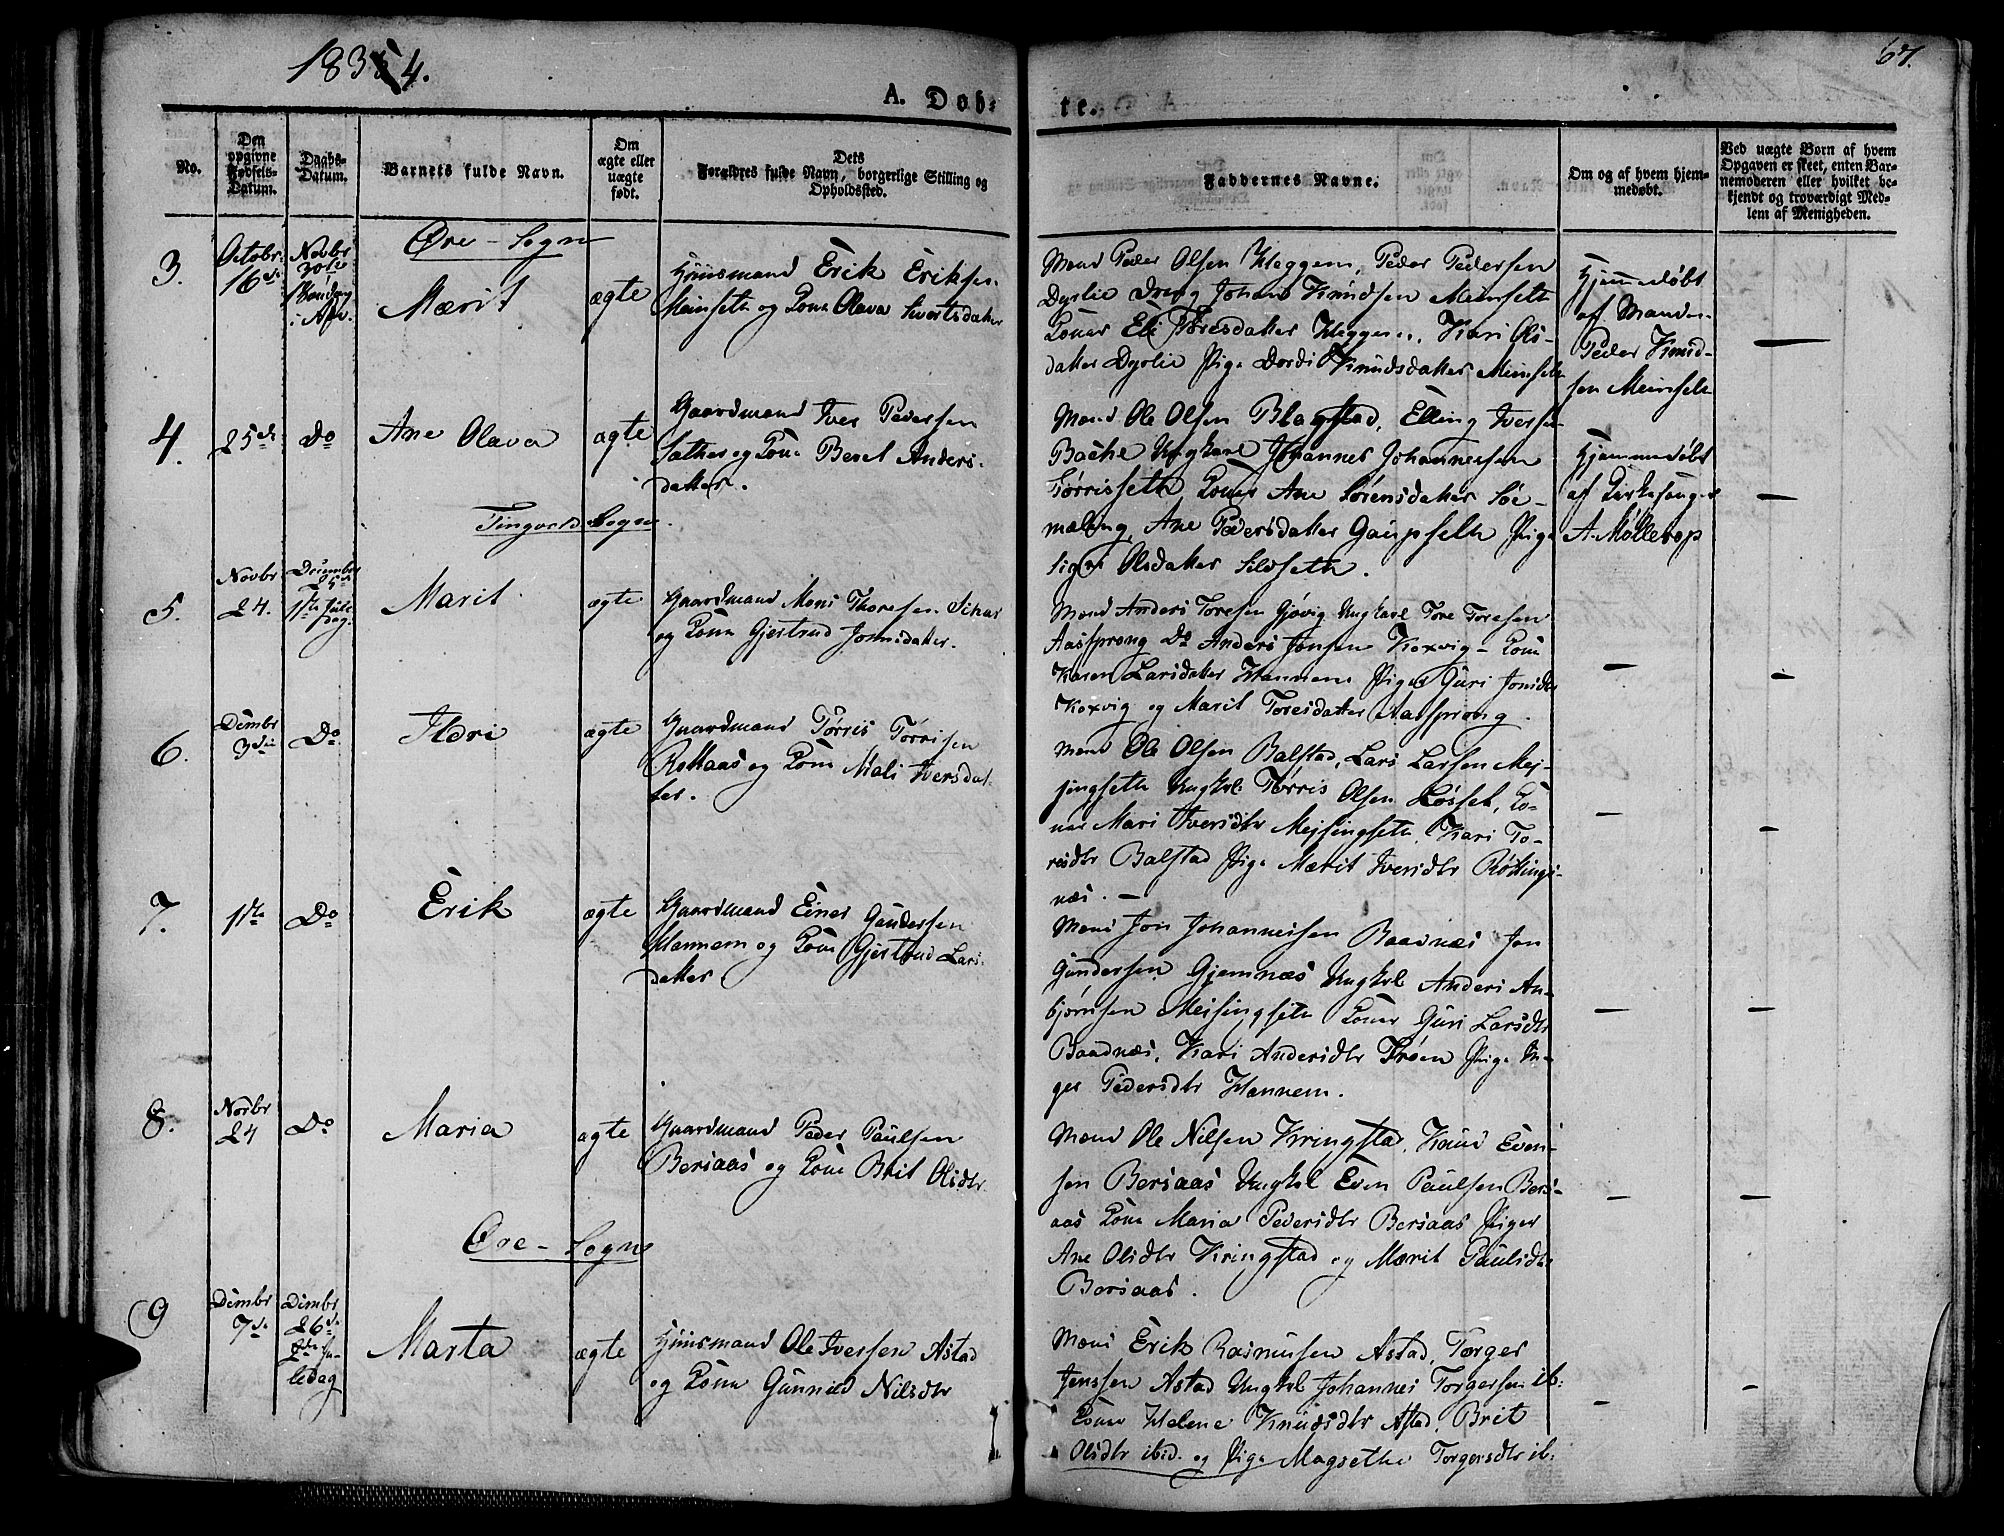 1834.
67.
A. Døb-
te.
No.
Den opgivne Fødsels-Datum.
Daabs-Datum.
Barnets fulde Navn.
Om ægte eller uægte født.
Dets Forældres fulde Navn, borgerlige Stilling og Opholdssted.
Faddernes Navne.
Om og af hvem hjem-medøbt.
Ved uægte Børn af hvem Opgaven er skeet, enten Bar-nemoderen eller hvilket be-kjendt og troværdigt Med-lem af Menigheden.
Øre-Sogn
3.
Octobr
16de
Novbr
30te
1 Søndag
i Adv.
Mærit
ægte
Huusmand Erik Eriksen
Meinseth og Kone Olava Sivertsdatter
Mænd Peder Olsen Heggem, Peder Pedersen
Dyrlie Dreng Johan Knudsen Meinseth
Koner Eli Toresdatter Heggem, Kari Ols-
datter Dyrlie Pige Dordi Knudsdatter Meinseth
Hjemmedøbt
af Manden
Peder Knud-
sen Meinseth
4.
25de
Do
Ane Olava
ægte
Gaardmand Iver Pedersen
Sæther og Kone Beret Anders-
datter.
Mænd Ole Olsen Blagstad, Elling Iversen
Bache Ungkarl Johannes Johannesen
Tørrisseth Koner Ane Sørensdatter Søe-
mæling, Ane Pedersdatter Gaupseth Pige
Signe Olsdatter Silseth.
Hjemmedøbt
af Kirkesanger
A. Møllerop
Tingvold Sogn.
5.
Novbr
24.
Decembr
25de
1ste Jule-
dag.
Marit
ægte
Gaardmand Mons Thoresen
og Kone Gjertrud Jonsdatter.
Mænd Anders Toresen Gjøvig Ungkarl Tore Toresen
Aassprong Do Anders Jonsen Koxvig - Kone
Karen Larsdatter Hannem Piger Guri Jonsdtr
Koxvig og Marit Toresdatter Aassprong.
6.
Dcmbr
3die
Do
Ildri
ægte
Gaardmand Tørris Tørrisen
Rottaas og Kone Mali Iversdat-
ter.
Mænd Ole Olsen Balstad, Lars Larsen Mej-
singseth Ungkl Tørris Olsen Løsset, Ko-
ner Mari Iversdtr Mejsingseth, Kari To-
resdtr Balstad Pige Mærit Iversdtr Røttings-
næs. -
7.
1ste
Do
Erik
ægte
Gaardmand Einer Gundersen
Hannem og Kone Gjertrud Lars-
datter
Mænd Jon Johannesen Baadnæs Jon
Gundersen Gjemnæs Ungkl Anders An-
bjørnsen Meisingseth Koner Guri Larsdtr
Baadnæs, Kari Andersdtr Trøen Pige In-
ger Pedersdtr Hannem.
8.
Novbr
24
Do
Maria
ægte
Gaardmand Peder Paulsen
Bersaas og Kone Brit Olsdtr
Mænd Ole Nilsen Kringsta, Knud Even-
sen Bersaas Ungkl Even Paulsen Bers-
aas Kone Maria Pedersdtr Bersaas Piger
Ane Olsdtr Kringstad og Mærit Paulsdtr
Bersaas.
Øre-Sogn
9
Dcmbr
7de
Dcmbr
26de
2den Ju-
ledag
Marta
ægte
Huusmand Ole Iversen Astad
og Kone Gunnild Nilsdtr
Mænd Erik Rasmusen Astad, Torger
Jenssen Astad Ungkl Johannes Torgersen ib:
Koner Helene Knudsdtr Astad, Brit
Olsdtr ibid. og Pige Magrethe Torgersdtr ib: